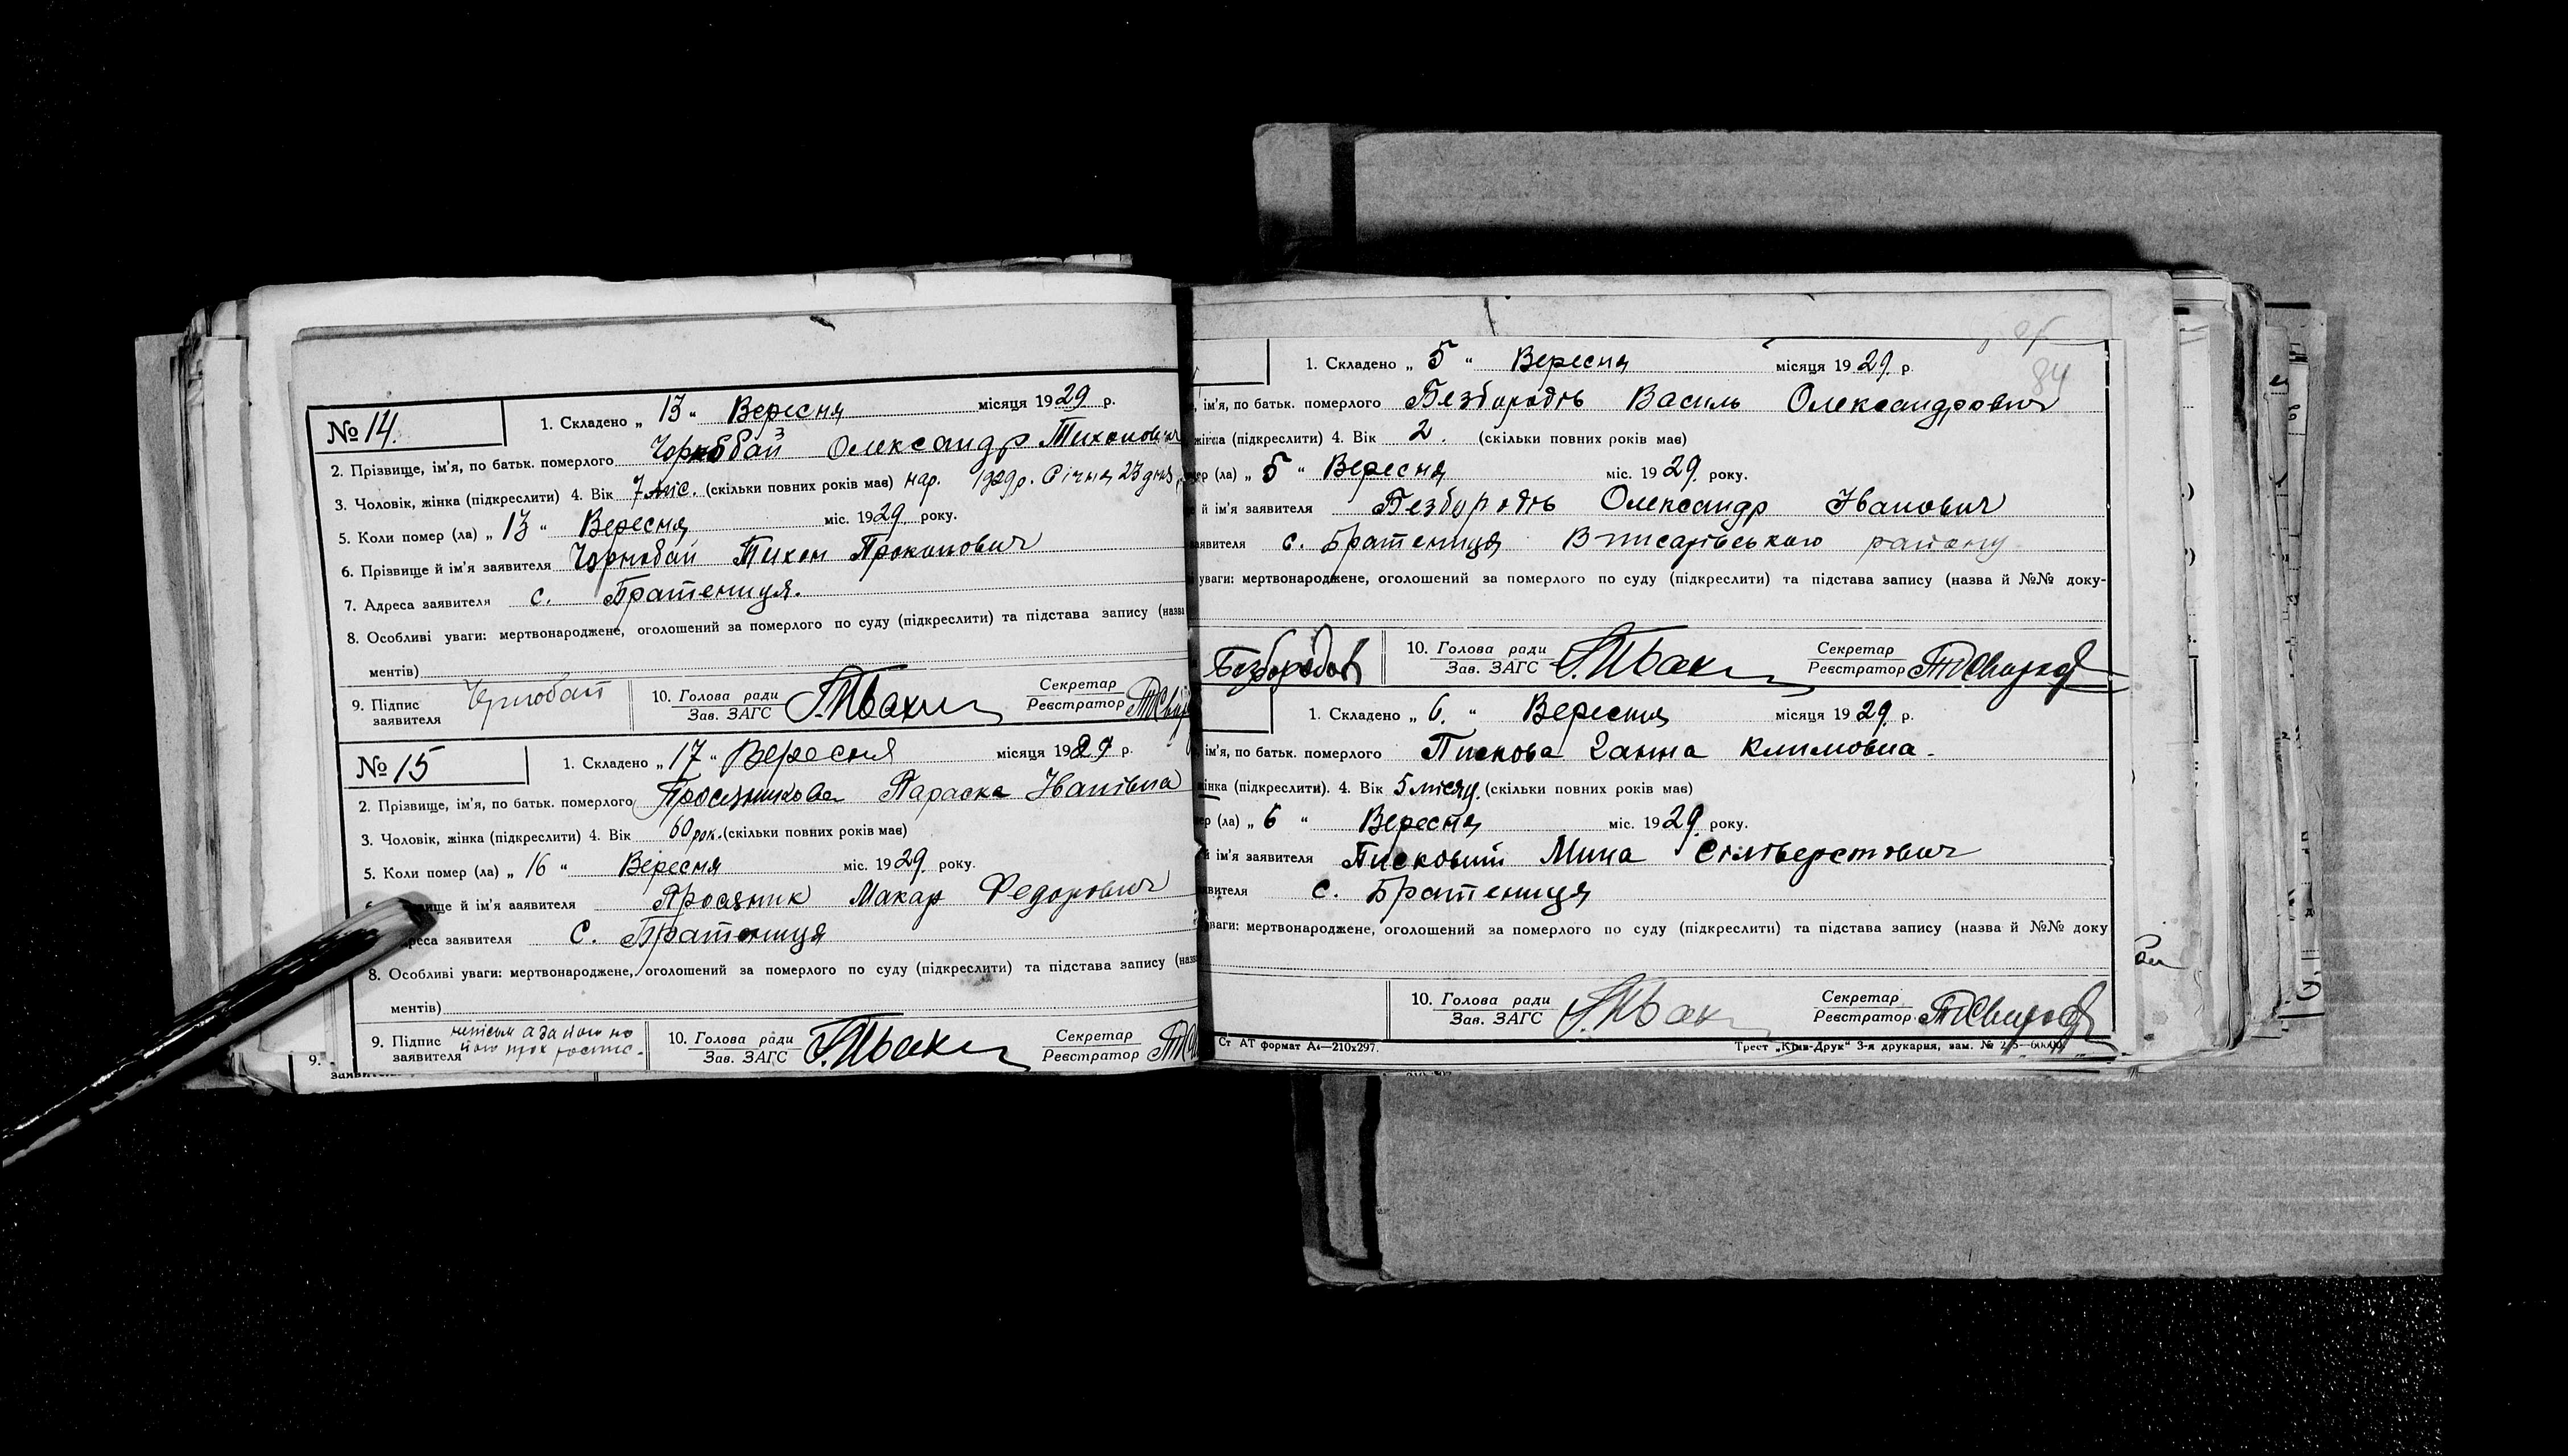 № 14.
1. Складено „ 13 “ Вересня місяця 1929 р.
2. Прізвище, ім'я, по батьк. померлого Чорнобай Олександр Тихонович
3. Чоловік, жінка (підкреслити) 4. Вік 7 міс. (скільки повних років має) нар. 1929 р. Січня 23 дня
5. Коли помер (ла) „ 13 “ Вересня міс. 1929 року.
6. Прізвище й ім'я заявителя Чорнобай Тихон Прокопович
7. Адреса заявителя с. Братениця.
8. Особливі уваги: мертвонароджене, оголошений за померлого по суду (підкреслити) та підстава запису (назва
ментів)
9. Підпис заявителя Чрнобай 10. Голова ради Зав. ЗАГС Секретар Реєстратор
№ 15
1. Складено „ 17 “ Вересня місяця 1929 р.
2. Прізвище, ім'я, по батьк. померлого Параска Іванівна
3. Чоловік, жінка (підкреслити) 4. Вік 60 рок. (скільки повних років має)
5. Коли помер (ла) „ 16 “ Вересня міс. 1929 року.
вище й ім'я заявителя Макар Федорович
реса заявителя С. Братениця
8. Особливі уваги: мертвонароджене, оголошений за померлого по суду (підкреслити) та підстава запису (назв
ментів)
9. Підпис заявителя 10. Голова ради Зав. ЗАГС Секретар Реєстратор
9.
84
1. Складено „ 5 “ Вересня місяця 1929 р.
ім'я, по батьк. померлого Безбородів Василь Олександрович
жінка (підкреслити) 4. Вік 2. (скільки повних років має)
ер (ла) „ 5 “ Вересня міс. 1929 року.
й ім'я заявителя Безбородів Олександр Іванович
заявителя с. Братениця В писарівського району
уваги: мертвонароджене, оголошений за померлого по суду (підкреслити) та підстава запису (назва й №№ доку-
Безбородов 10. Голова ради Зав. ЗАГС Секретар Реєстратор
1. Складено „ 6. “ Вересня місяця 1929 р.
ім'я, по батьк. померлого Пискова Ганна Климовна.
жінка (підкреслити). 4. Вік 5 місяц. (скільки повних років має)
ер (ла) „ 6 “ Вересня міс. 1929 року.
й ім'я заявителя Писковий Мина Сільверстович
явителя с. Братениця
уваги: мертвонароджене, оголошений за померлого по суду (підкреслити) та підстава запису (назва й №№ доку
10. Голова ради Зав. ЗАГС Секретар Реєстратор
Ст АТ формат А4—210х297. Трест „Київ-Друк“ 3-я друкарня, зам. №